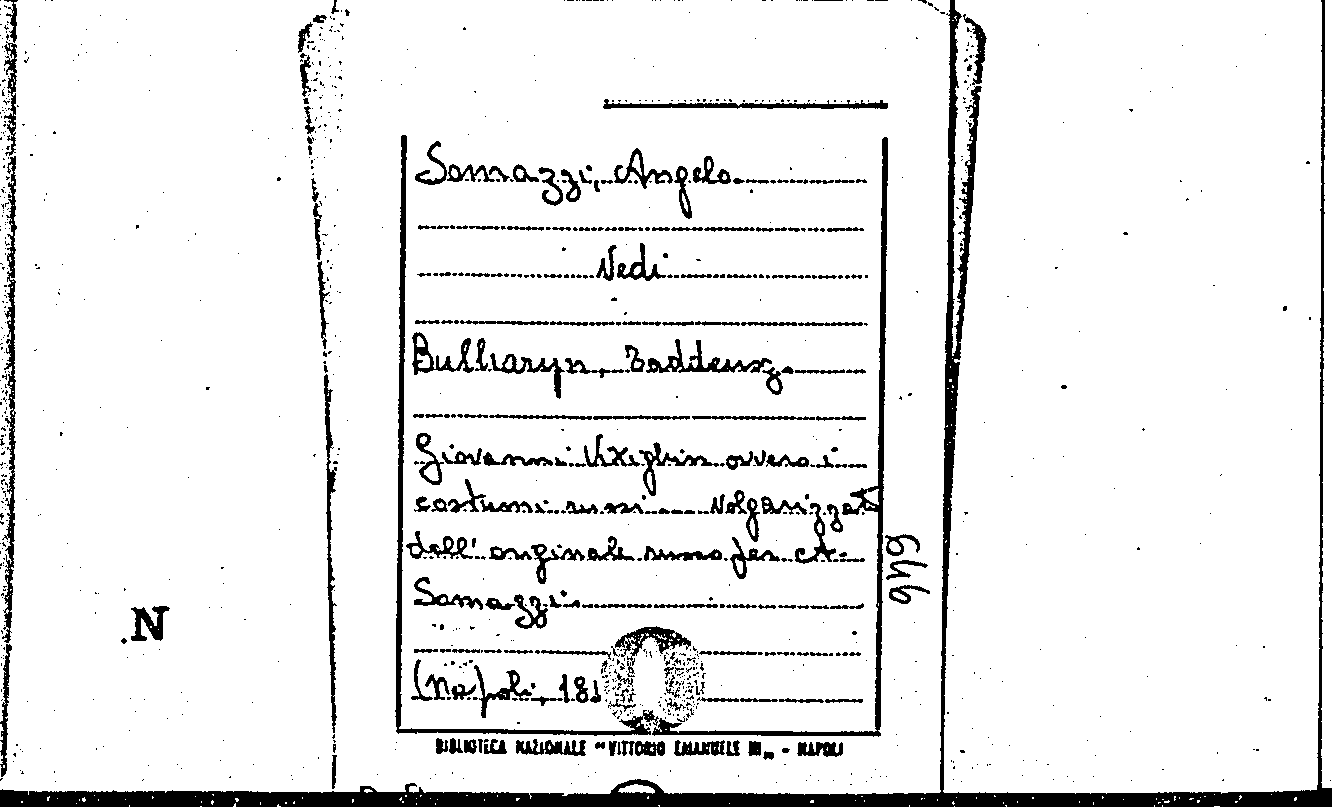 Somazzi, Angelo.
Vedi
Bulharyn, Taddeusz.
Giovanni Vixighin ovvero i
costumi russi ... Volgarizzat
dall' originale russo per A.
Somazzi.
(Napoli, 183
6446
.N
BIBLIOTECA NAZIONALE "VITTORIO EMANUELE III„ - NAPOLI